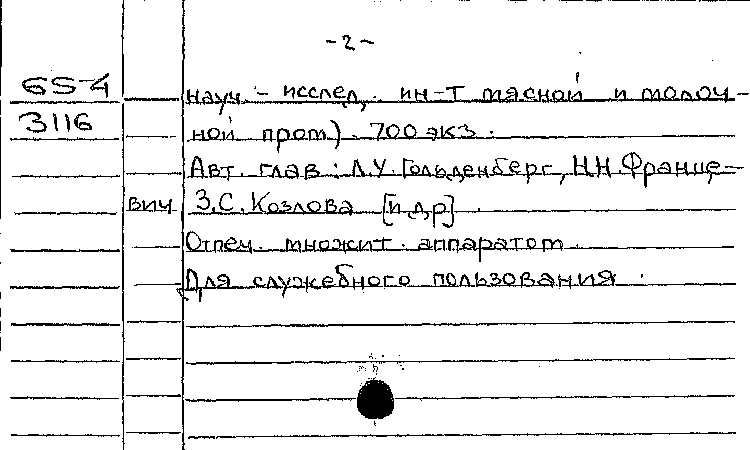 -2-
65-4
науч.- исслед. ин-т мясной и молоч-
3116
ной пром). 700 экз.
Авт. глав: Л.У. Гольденберг, Н.Н. Франце-
вич З.С. Козлова [и др]
Отпеч. множит. аппаратом
Для служебного пользования.